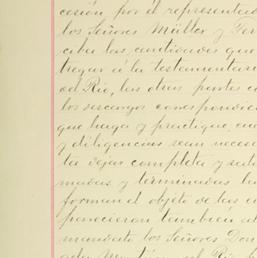 cesión por el representad
los Señores Müller y
cibir las cantidades que
tregar á la testamentari
del Rio, las otras partes co
los descargos correspondien
que haga y practique, cu
y diligencias sean necesa
ta dejar completa y
madas y terminadas las
forman el objeto de las
parecieran tambien al
mandato los Señores Don